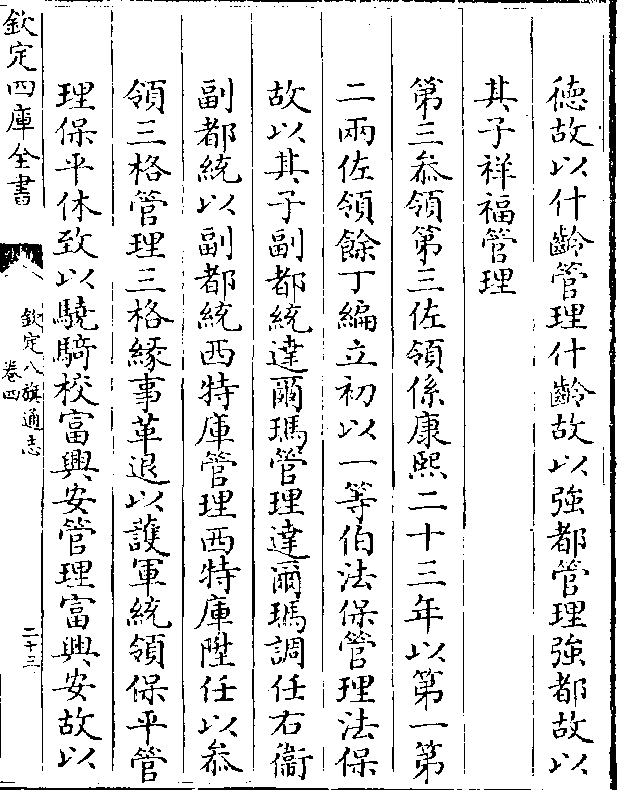 德故以什齡管理什齡故以強都管理強都故以
其子祥福管理
第三叅領第三佐領係康熙二十三年以第一第
二兩佐領餘丁編立初以一等伯法保管理法保
故以其子副都統達爾瑪管理達爾瑪調任右衞
副都統以副都統西特庫管理西特庫陞任以叅
領三格管理三格緣事革退以護軍統領保平管
理保平休致以驍騎校富興安管理富興安故以
欽定四庫全書
欽定八旗通志
卷四
二十三